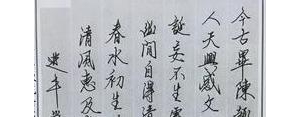 今古畢陳
人天興感文
誕妄不生
幽閒自得清
春水初生
清風惠及